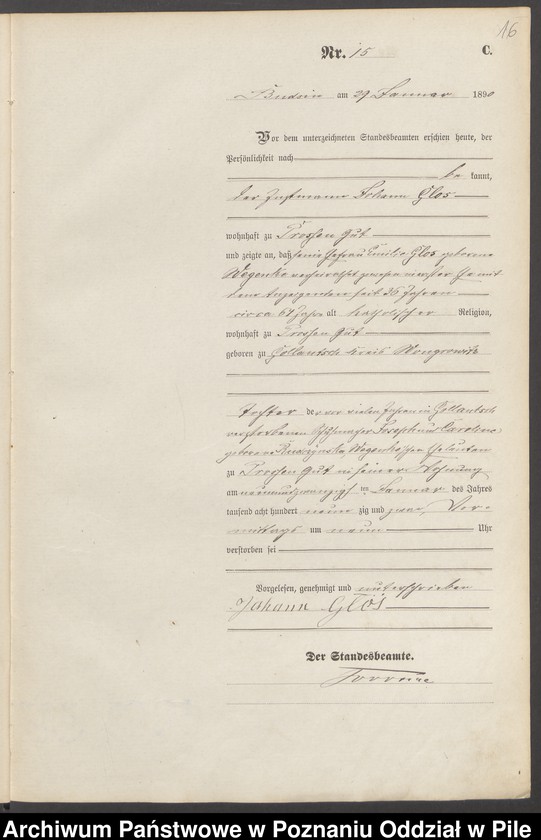 16
Nr. 15 C.
Budsin am 29 Januar 1890
Vor dem unterzeichneten Standesbeamten erschien heute, der
Persönlichkeit nach
be kannt,
der Johann Glos
wohnhaft zu Prossen Gut
und zeigte an, daß seine Ehefrau Emilie Glos geborene
Wegenke verheirathet gewesen in erster Ehe mit
dem Anzeigenden seit 36 Jahren
circa 61 Jahre alt katholischer Religion,
wohnhaft zu Prossen Gut
geboren zu Gollantsch Kreis Wongrowitz
Tochter der vor vielen Jahren in Gollantsch
verstorbenen Schuhmacher Joseph und Caroline
geborene Wegenkeschen Eheleuten
zu Prossen Gut in seiner Wohnung
am neunundzwanzigsten Januar des Jahres
tausend acht hundert neunzig und zwar Vor-
mittags um neun Uhr
verstorben sei
Vorgelesen, genehmigt und unterschrieben
Johann Glos
Der Standesbeamte.
Archiwum Państwowe w Poznaniu Oddział w Pile